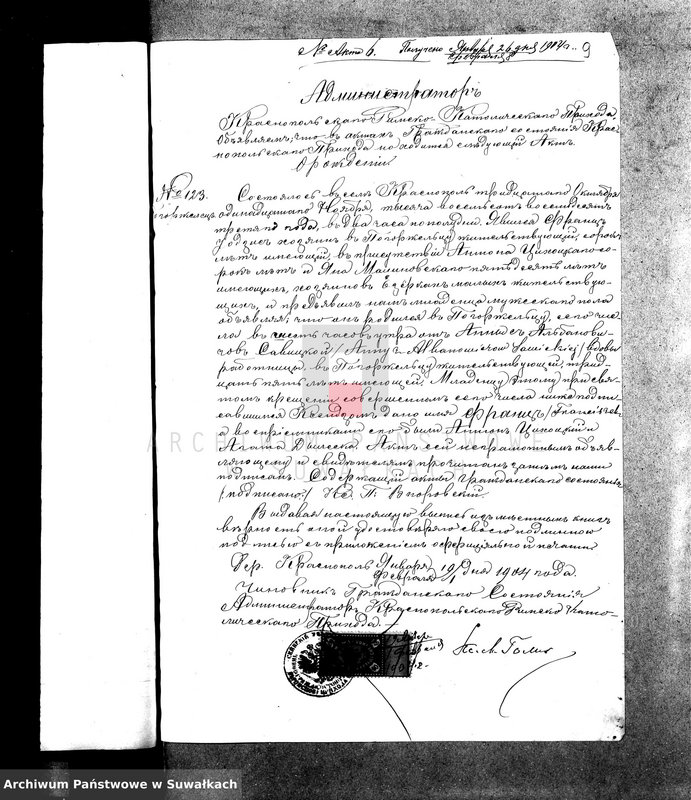 № Акта 6. Получено Января 26 дня 1904 г. 9
Февраля 8
Администраторъ
Краснопольскаго Римско-Католическаго Прихода
объявляемъ, что въ актахъ Гражданскаго состоянія Крас-
нопольскаго Прихода находится слѣдующій Актъ
о рожденіи
№ 123.
Погоржелецъ
Состоялось въ селѣ Краснополь тридцатаго Октября
одинадцатаго Ноября, тысяча восемьсотъ восемьдесятъ
третьяго года, въ два часа по полудни. Явился Францъ
хозяинъ въ Погоржельцу жительствующій, сорокъ
лѣтъ имѣющій, въ присутствіи Антона Циноцкаго со-
рокъ лѣтъ и Яна Малиновскаго пятьдесятъ лѣтъ
имѣющихъ, хозяиновъ въ Езёркахъ малыхъ жительствую-
щихъ, и предъявилъ намъ младенца мужескаго пола
объявляя, что онъ родился въ Погоржельцу, сего чис-
ла въ шесть часовъ утра отъ Анны съ Альбанови-
човъ Савицкой /Anny z Albanowiczow Sawickiej/ вдовы
работницы, въ Погоржельцу жительствующей, трид-
цать пять лѣтъ имѣющей. Младенцу этому при свя-
томъ крещеніи совершенномъ сего числа нижеподпи-
савшимся Ксендзомъ дано имя Францъ /Franciszek/
а воспріемниками его были Антонъ Циноцкій и
Агата Актъ сей неграмотнымъ объяв-
ляющему и свидѣтелямъ прочитанъ, нами
подписанъ. Содержащій акты гражданскаго состоянія
/подписано/ Кс. П. Вноровскій.
Выдавая настоящую выпись изъ мѣстныхъ книгъ
вѣрность оной удостовѣряю своею подлинною
подписью съ приложеніемъ оффиціальной печати
Дер. Краснополь Января 19 дня 1904 года.
Февраля 1
Чиновникъ Гражданскаго Состоянія
Администраторъ Краснопольскаго Римско-Като-
лическаго Прихода.
ARCHIWUM PAŃSTWOWE
W SUWAŁKACH
Archiwum Państwowe w Suwałkach